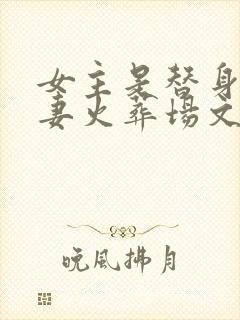 女主是替身
妻火葬场文
晚风拂月